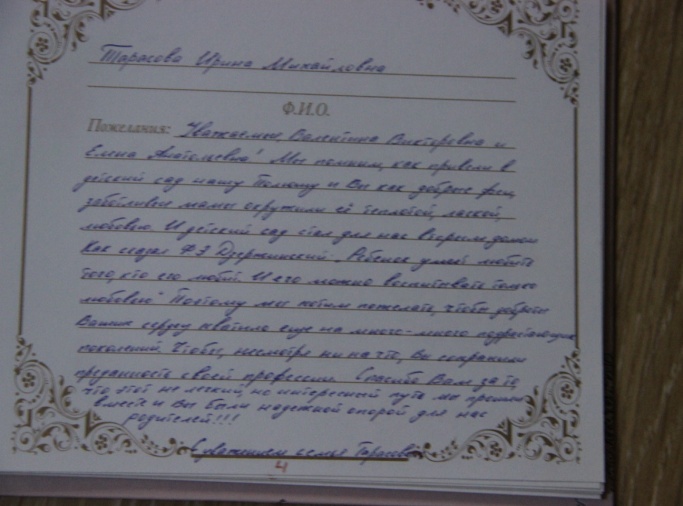 Тарасова Ирина Михайловна
Ф.И.О.
Пожелания: Уважаемые, Валентина Викторовна и
Елена Анатольевна! Мы помним, как привели в
детский сад нашу и Вы как добрые феи,
заботливые мамы окружили её теплотой, лаской,
любовью. И детский сад стал для нас вторым домом
Как сказал Ф.Э Дзержинский: Ребенок умеет любить
того, кто его любит. И его можно воспитывать только
любовью" Поэтому мы хотим пожелать, чтобы доброты
Ваших сердец хватило еще на много-много подрастающих
поколений. Чтобы, несмотря ни на что, Вы сохранили
преданность своей профессии. Спасибо Вам за то
что этот не легкий, но интересный путь мы прошли
вместе и Вы были надежной опорой для нас
родителей!!!
С уважением семья Тарасовы
4